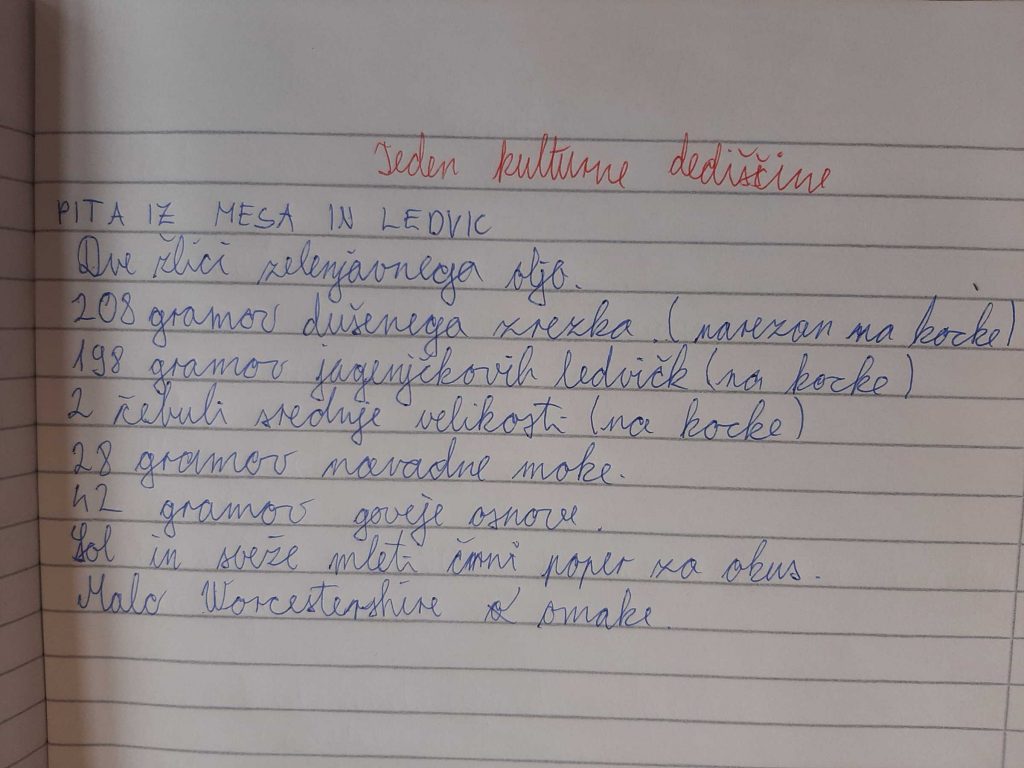 Teden kulturne dediščine
PITA IZ MESA IN LEDVIC
Dve žlici zelenjavnega olja.
208 gramov dušenega zrezka. (narezan na kocke)
198 gramov jagenjčkovih ledvičk (na kocke)
2 čebuli srednje velikosti (na kocke)
28 gramov navadne moke.
42 gramov goveje osnove.
Sol in sveže mleti črni poper za okus.
Malo Worcestershire omake.